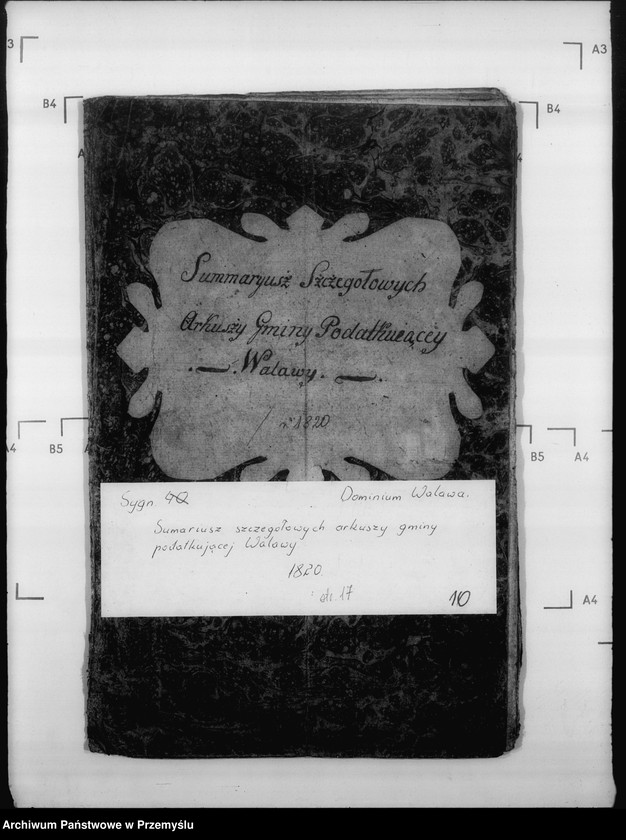 3
A3
B4
B4
A
4
Summaryusz Szczegołowych
Arkuszy Gminy Podatkuiącéy
Walawy.
1820
A4
B5
A
B5
A4
Sygn. 9
Dominium Walawa.
Sumariusz szczegołowych arkuszy gminy
podatkującej Walawy
1820
str. 17
10
A4
Archiwum Państwowe w Przemyślu